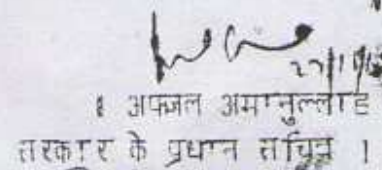 । अफजल अमानुल्लाह
सरकार के प्रधान सचिव ।